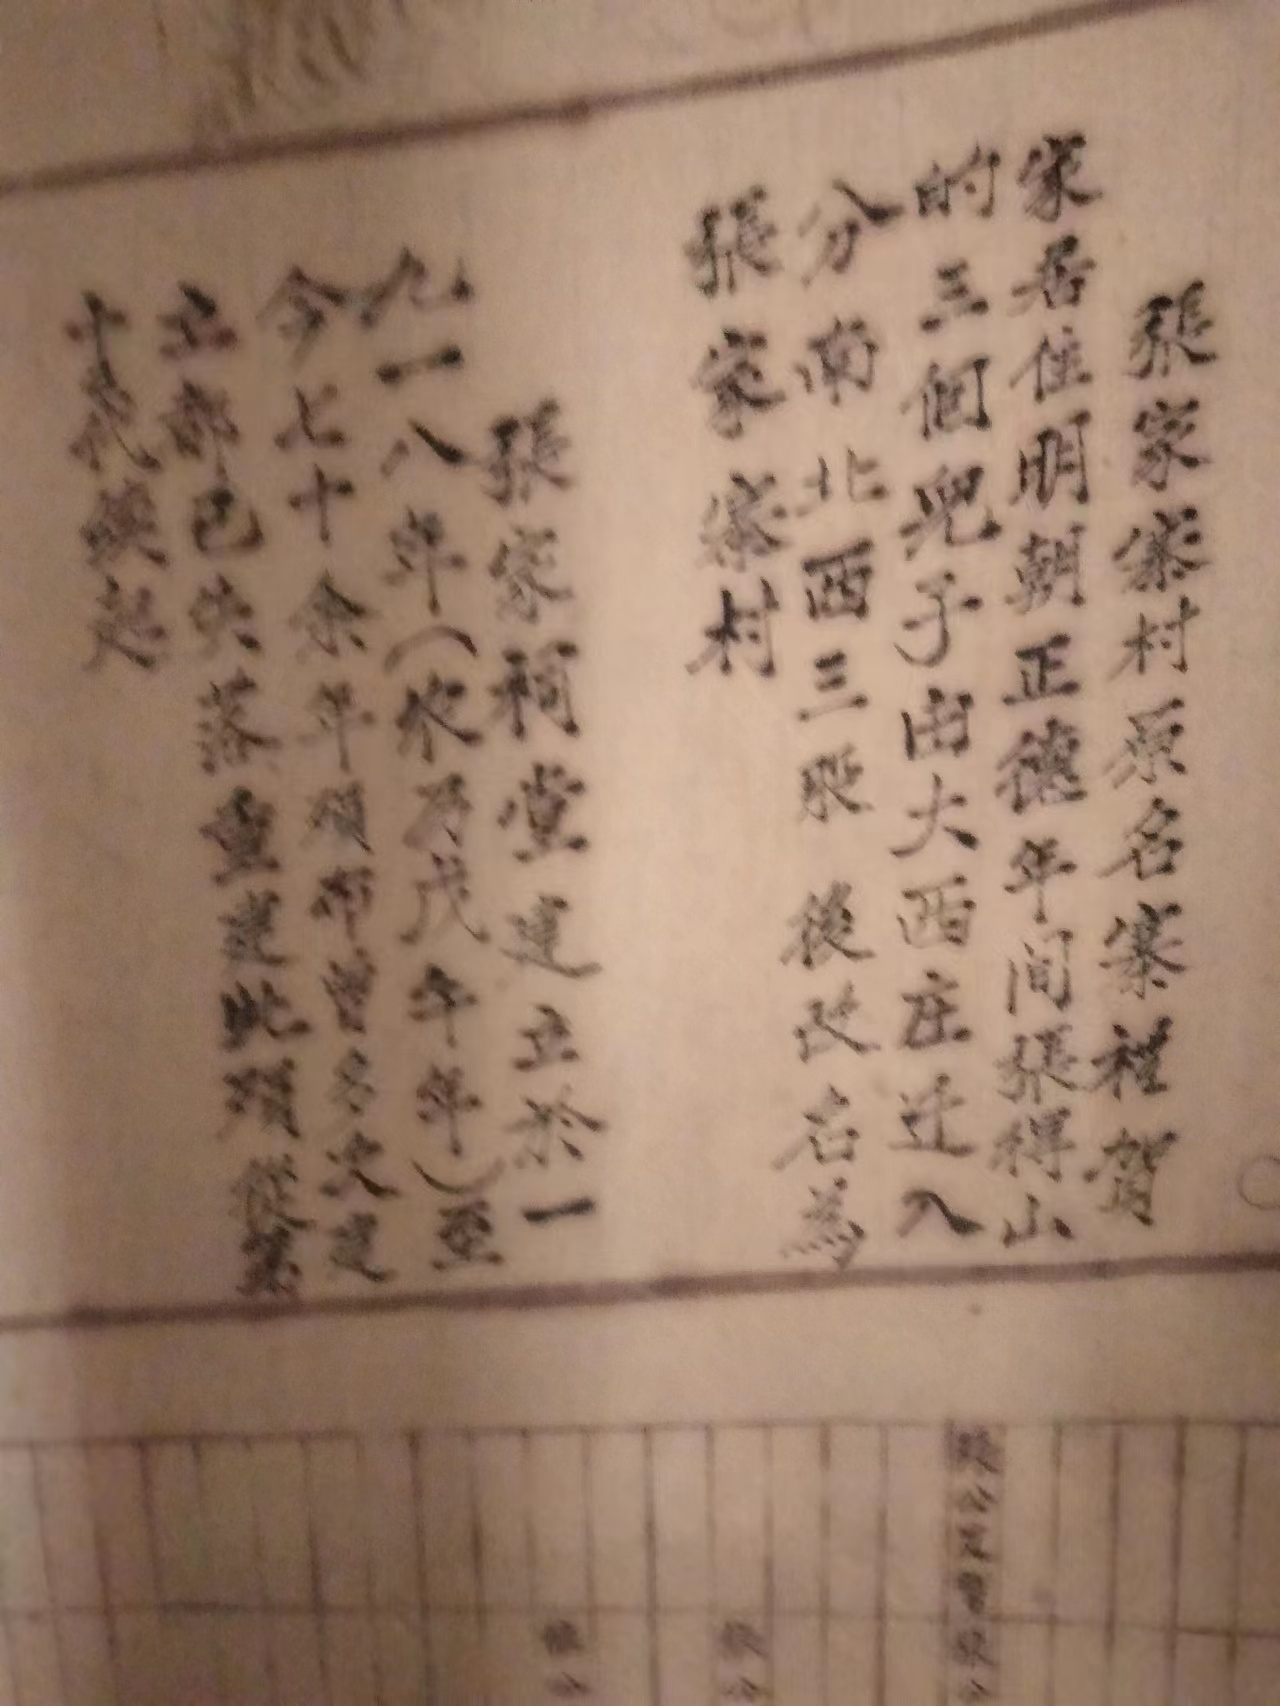 張家寨村原名寨裡賀
家居住明朝正德年间張得山
的三個兒子由大西庄迁入
分南北西三張 後改名為
張家寨村
張家祠堂建立於一
九一八年(农历戊午年)至
今七十余年項布曾多次建
立都已失落重建此項
十代續起